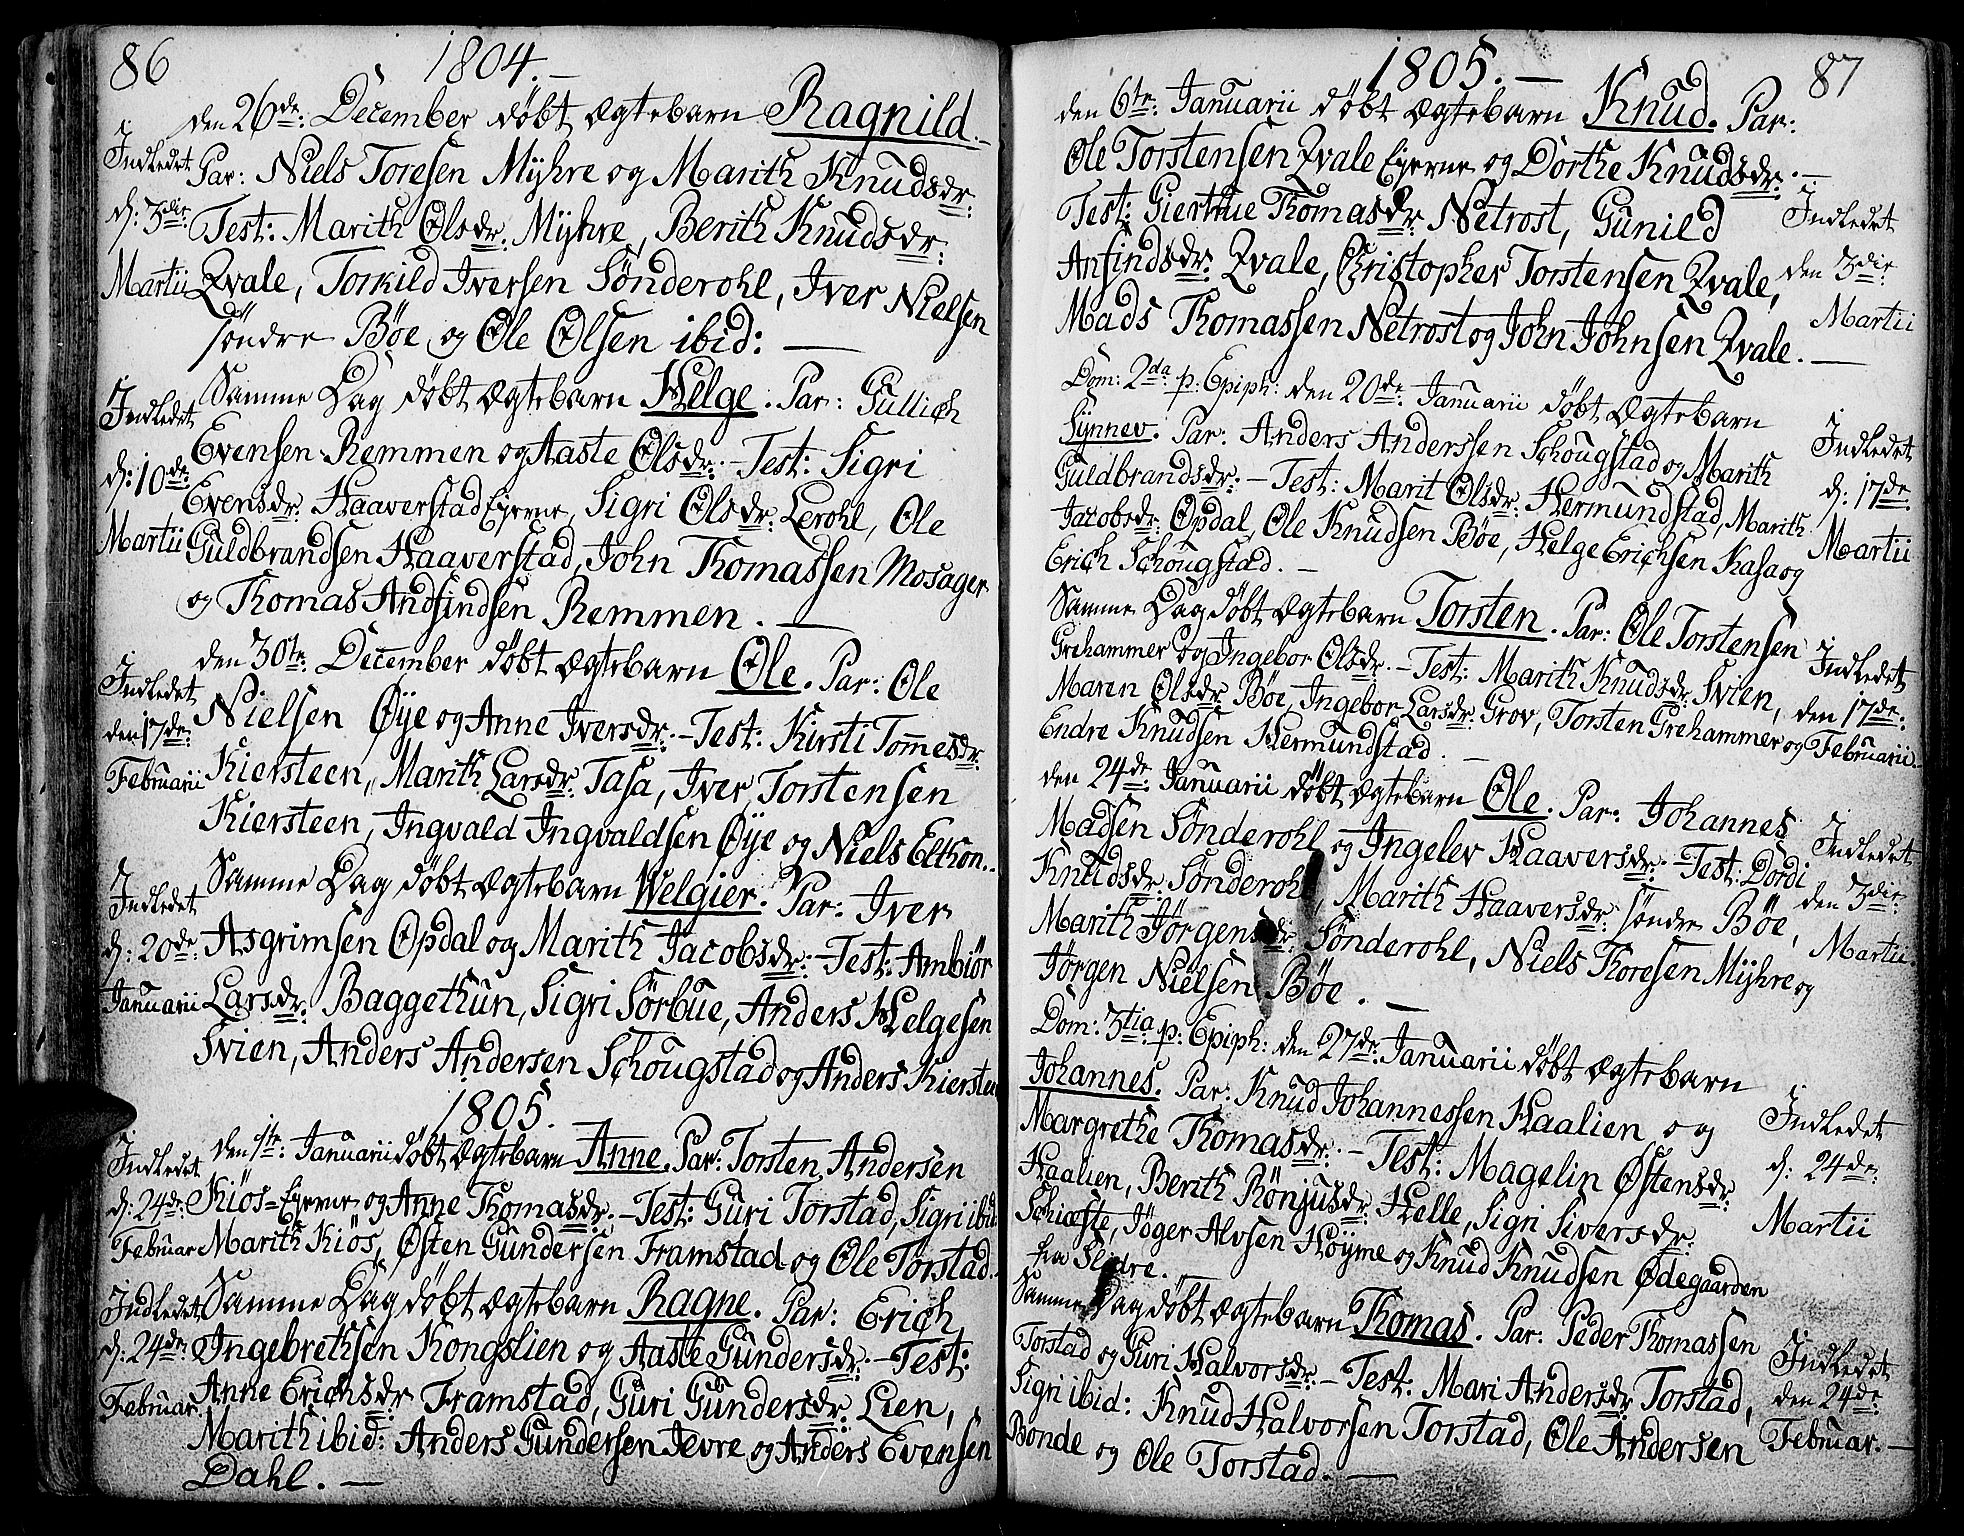 86
1804.
den 26de: December døbt Ægtebarn Ragnild.
Par: Niels Toresen Myhre og Marith Knudsdr:
Test: Marith Olsdr: Myhre, Berith Knudsdr:
Qvale, Torkild Iversen Sönderohl, Iver Nielsen
søndre Bøe, og Ole Olsen ibid: —
Indledet
d: 3die
Martii
Samme Dag døbt Ægtebarn Helge. Par: Gullich
Evensen Remmen og Aaste Olsdr: - Test: Sigri
Evensdr: Haaverstad Eyerne, Sigri Olsdr: Lerohl, Ole
Guldbrandsen Haaverstad, John Thomassen Mosager
og Thomas Andfindsen Remmen. —
Indledet
d: 10de
Martii
den 30te: December døbt Ægtebarn Ole. Par: Ole
Nielsen Øÿe og Anne Iversdr: - Test: Kirsti Tom̄esdr:
Kiersteen, Marith Larsdr: Tasa, Iver Torstensen
Kiersteen, Ingvald Ingvaldsen Øÿe og Niels Elthon.
Indledet
den 17de:
Februarii
Samme Dag døbt Ægtebarn Welgier. Par: Iver
Asgrimsen Opdal og Marith Jacobsdr: - Test: Ambiör
Larsdr: Baggethun, Sigri Sörbue, Anders Helgesen
Svien, Anders Andersen Schougstad og Anders Kiersteen
Indledet
d: 20de
Januarii
1805.
den 1te: Januarii døbt Ægtebarn Anne. Par: Torsten Andersen
Kiös= Eyerne og Anne Thomasdr: - Test: Guri Torstad, Sigri ibid
Marith Kiös, Østen Gundersen Framstad og Ole Torstad.
Indledet
d: 24de
Februar
Samme Dag døbt Ægtebarn Ragne. Par: Erich
Ingebrethsen Kongslien og Aaste Gundersdr: - Test:
Anne Erichsdr: Framstad, Guri Gundersdr: Lien,
Marith ibid: Anders Gundersen Jevre og Anders Evensen
Dahl. —
Indledet
d: 24de
Februar
1805. —
87
den 6te: Januarii døbt Ægtebarn Knud. Par:
Ole Torstensen Qvale Eyerne og Dorthe Knudsdr: —
Test: Giertrue Thomasdr: Netrost, Gunild
Anfindsdr: Qvale, Christopher Torstensen Qvale,
Mads Thomassen Netrost og John Johnsen Qvale. —
Indledet
den 3die
Martii
Dom: 2da p: Epiph: den 20de Januarii døbt Ægtebarn
Synnev. Par: Anders Anderssen Schougstad og Marith
Guldbrandsdr: - Test: Marit Olsdr: Hermundstad, Marith
Jacobsdr: Opdal, Ole Knudsen Bøe, Helge Erichsen Kasa og
Erich Schougstad. —
Indledet
d: 17de
Martii
Samme Dag døbt Ægtebarn Torsten. Par: Ole Torstensen
Grehammer og Ingebor Olsdr: - Test: Marith Knudsdr: Svien,
Maren Olsdr: Bøe, Ingebor Larsdr: Grov, Torsten Grehammer og
Endre Knudsen Hermundstad. —
Indledet
den 17de:
Februarii.
den 24de Januarii døbt Ægtebarn Ole. Par: Johannes
Madsen Sønderohl og Ingelev Haaversdr: - Test: Dordi
Knudsdr: Sønderohl, Marith Haaversdr: søndre Bøe,
Marith Jörgensdr: Sønderohl, Niels Thoresen Myhre og
Jörgen Nielsen Bøe. —
Indledet
den 3die
Martii.
Dom: 3tia p: Epiph: den 27de: Januarii døbt Ægtebarn
Johannes. Par: Knud Johannessen Haalien og
Margrethe Thomasdr: - Test: Magelin Østensdr:
Haalien, Berith Rönjusdr: Helle, Sigri Siversdr:
Schiæfte, Jøger Alvsen Höyme og Knud Knudsen Ødegaarden
fra Slidre. —
Indledet
d: 24de
Martii
Samme Dag døbt Ægtebarn Thomas. Par: Peder Thomassen
Torstad og Guri Halvorsdr: - Test: Mari Andersdr: Torstad,
Sigri ibid: Knud Halvorsen Torstad, Ole Andersen
Bonde og Ole Torstad. —
Indledet
den 24de
Februar. —